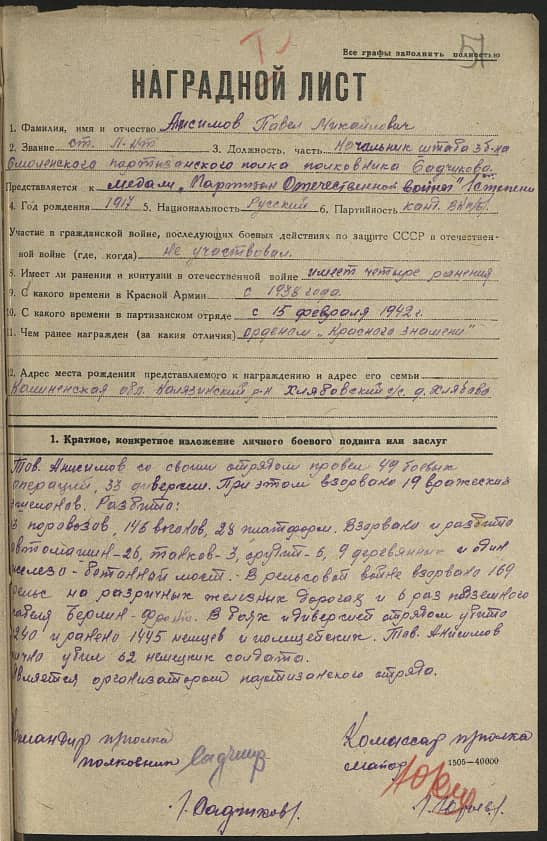 Все графы заполнить полностью
51
НАГРАДНОЙ ЛИСТ
1. Фамилия, имя и отчество Анисимов Павел Михайлович
2. Звание ст. л-нт 3. Должность, часть Начальник штаба 3 б-на
Смоленского партизанского полка полковника Садчикова.
Представляется к медали „Партизан Отечественной войны" I степени
4. Год рождения 1917 5. Национальность Русский 6. Партийность канд. ВКП/б/.
Участие в гражданской войне, последующих боевых действиях по защите СССР и отечествен-
ной войне (где, когда) не участвовал.
8. Имеет ли ранения и контузии в отечественной войне имеет четыре ранения
9. С какого времени в Красной Армии с 1938 года.
10. С какого времени в партизанском отряде с 15 февраля 1942 г.
11. Чем ранее награжден (за какия отличия) орденом „Красного знамени"
2. Адрес места рождения представляемого к награждению и адрес его семьи
Калининская обл. Калязинский р-н Хлябовский с/с. д. Хлябова
1. Краткое, конкретное изложение личного боевого подвига или заслуг
Тов. Анисимов со своим отрядом провел 49 боевых
операций, 33 диверсии. При этом взорвано 19 вражеских
эшелонов. Разбито:
3 паровозов, 146 вагонов, 28 платформ. Взорвано и разбито
автомашин-26, танков-3, орудий-5, 9 деревянных и один
железо-бетонный мост. В рельсовой войне взорвано 169
рельс на различных железных дорогах и 6 раз подземного
кабеля Берлин-фронт. В боях и диверсиях отрядом убито
240 и ранено 1445 немцев и полицейских. Тов. Анисимов
лично убил 62 немецких солдата.
Является организатором партизанского отряда.
Командир п/полка
полковник
/Садчиков/.
Комиссар п/полка
майор
1505—40000
/Юрьев/.